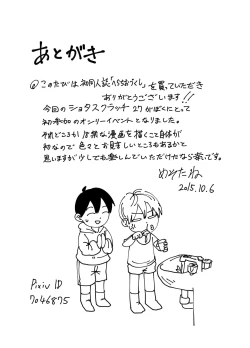 あとがき
このたびは初同人誌「へそおづくし」を買っていただき
ありがとうございます!!
今回のショタスクラッチ27がぼくにとって
初参加のオンリーイベントとなりました。
それどころか18禁な漫画を描くこと自体が
初なので色々とお見苦しいところもあるかと
思いますが少しでも楽しんでいただけたなら幸いです。
めそたね
2015.10.6
Pixiv ID
7046875